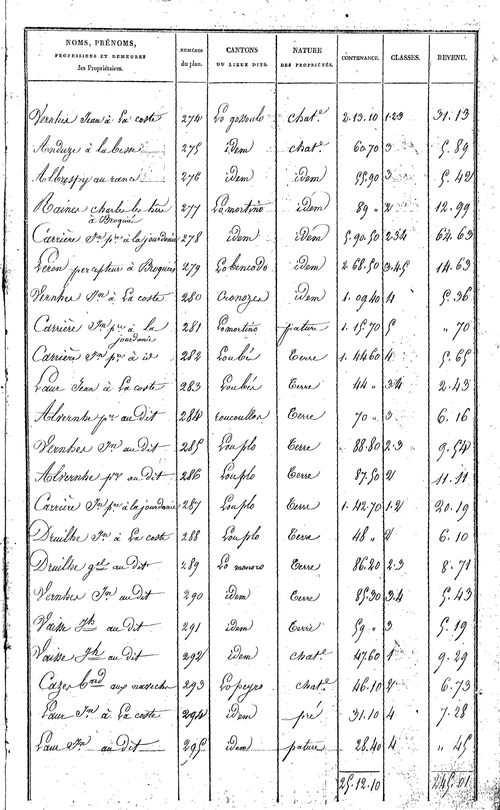 NOMS, PRÉNOMS, PROFESSIONS ET DEMEURES des Propriétaires. NUMÉROS du plan. CANTONS OU LIEUX DITS. NATURE DES PROPRIÉTÉS. CONTENANCE. CLASSES. REVENU.
Vernhes Jean à La coste 274 Lo gossoulo chat.e 2.13.10 1.2.3 31.13
Anduze à la besse 275 idem chat.e 60.70 3 5.89
Albrespy au ranc 276 idem idem 55.90 3 5.42
Raines charles le fière à Broquiès 277 Lamortino idem 89 „ 2 12.99
Carrière Jn pre à la jourdanie 278 idem idem 5.90.50 2.3.4 64.63
Leron percepteur à Broquies 279 Lo bencodo idem 2.68.50 3.4.5 14.63
Vernhes Jn à La coste 280 Cronozes idem 1.09.40 4 5.36
Carrière Jn pre à la jourdanie 281 Lamortino pature 1.15.70 5 „ 70
Carrière Jn pre à id 282 Loubés Terre 1.44.60 4 5.65
Laur Jean à La coste 283 Loubés Terre 44 „ 3.4 2.43
Alvernhe pre au dit 284 roucoullou Terre 70 „ 3 6.16
Vernhes Jn au dit 285 Louplo Terre 88.80 2.3 9.54
Alvernhe pre au dit 286 Louplo Terre 87.50 2 11.11
Carrière Jn pre à la jourdanie 287 Louplo Terre 1.42.70 1.2 20.19
Druilhe Jn à La coste 288 Louplo Terre 48 „ 2 6.10
Druilhe gel au dit 289 Lo monoro Terre 86.20 2.3 8.71
Vernhes Jn au dit 290 idem Terre 85.30 3.4 5.43
Vaisse Jh au dit 291 idem Terre 59 „ 3 5.19
Vaisse Jh au dit 292 idem chat.e 47.60 1 9.29
Cazes bard aux naveches 293 Lo peyro chat.e 46.10 2 6.73
Laur Jn à La coste 294 idem pré 31.10 4 7.28
Laur Jn au dit 295 idem pature 28.40 4 „ 45
25.12.10 245.01